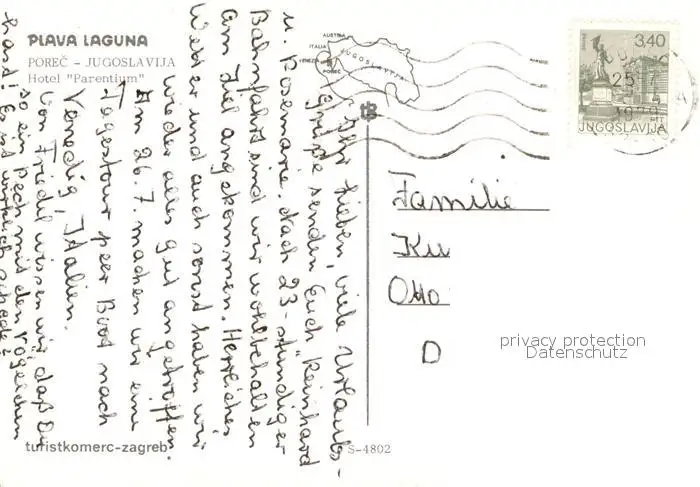 PLAVA LAGUNA
POREČ - JUGOSLAVIJA
Hotel "Parentium"
AUSTRIA
ITALIA
VENEZIA
JUGOSLAVIJA
POREČ
3,40
25. 7.
JUGOSLAVIJA
Ihr Lieben, viele Urlaubs-
grüße senden Euch Reinhard
u. Rosemarie. Nach 23-stündiger
Bahnfahrt sind wir wohlbehalten
am Ziel angekommen. Herrliches
Wetter und auch sonst haben wir
wieder alles gut angetroffen.
Am 26.7. machen wir eine
Tagestour per Boot nach
Venedig, Italien.
Von Friedel wissen wir, daß Du
so ein Pech mit den Vögelchen
hast! Es ist wirklich schade!
Familie
Ku
Otto
D
privacy protection
Datenschutz
turistkomerc-zagreb
S-4802